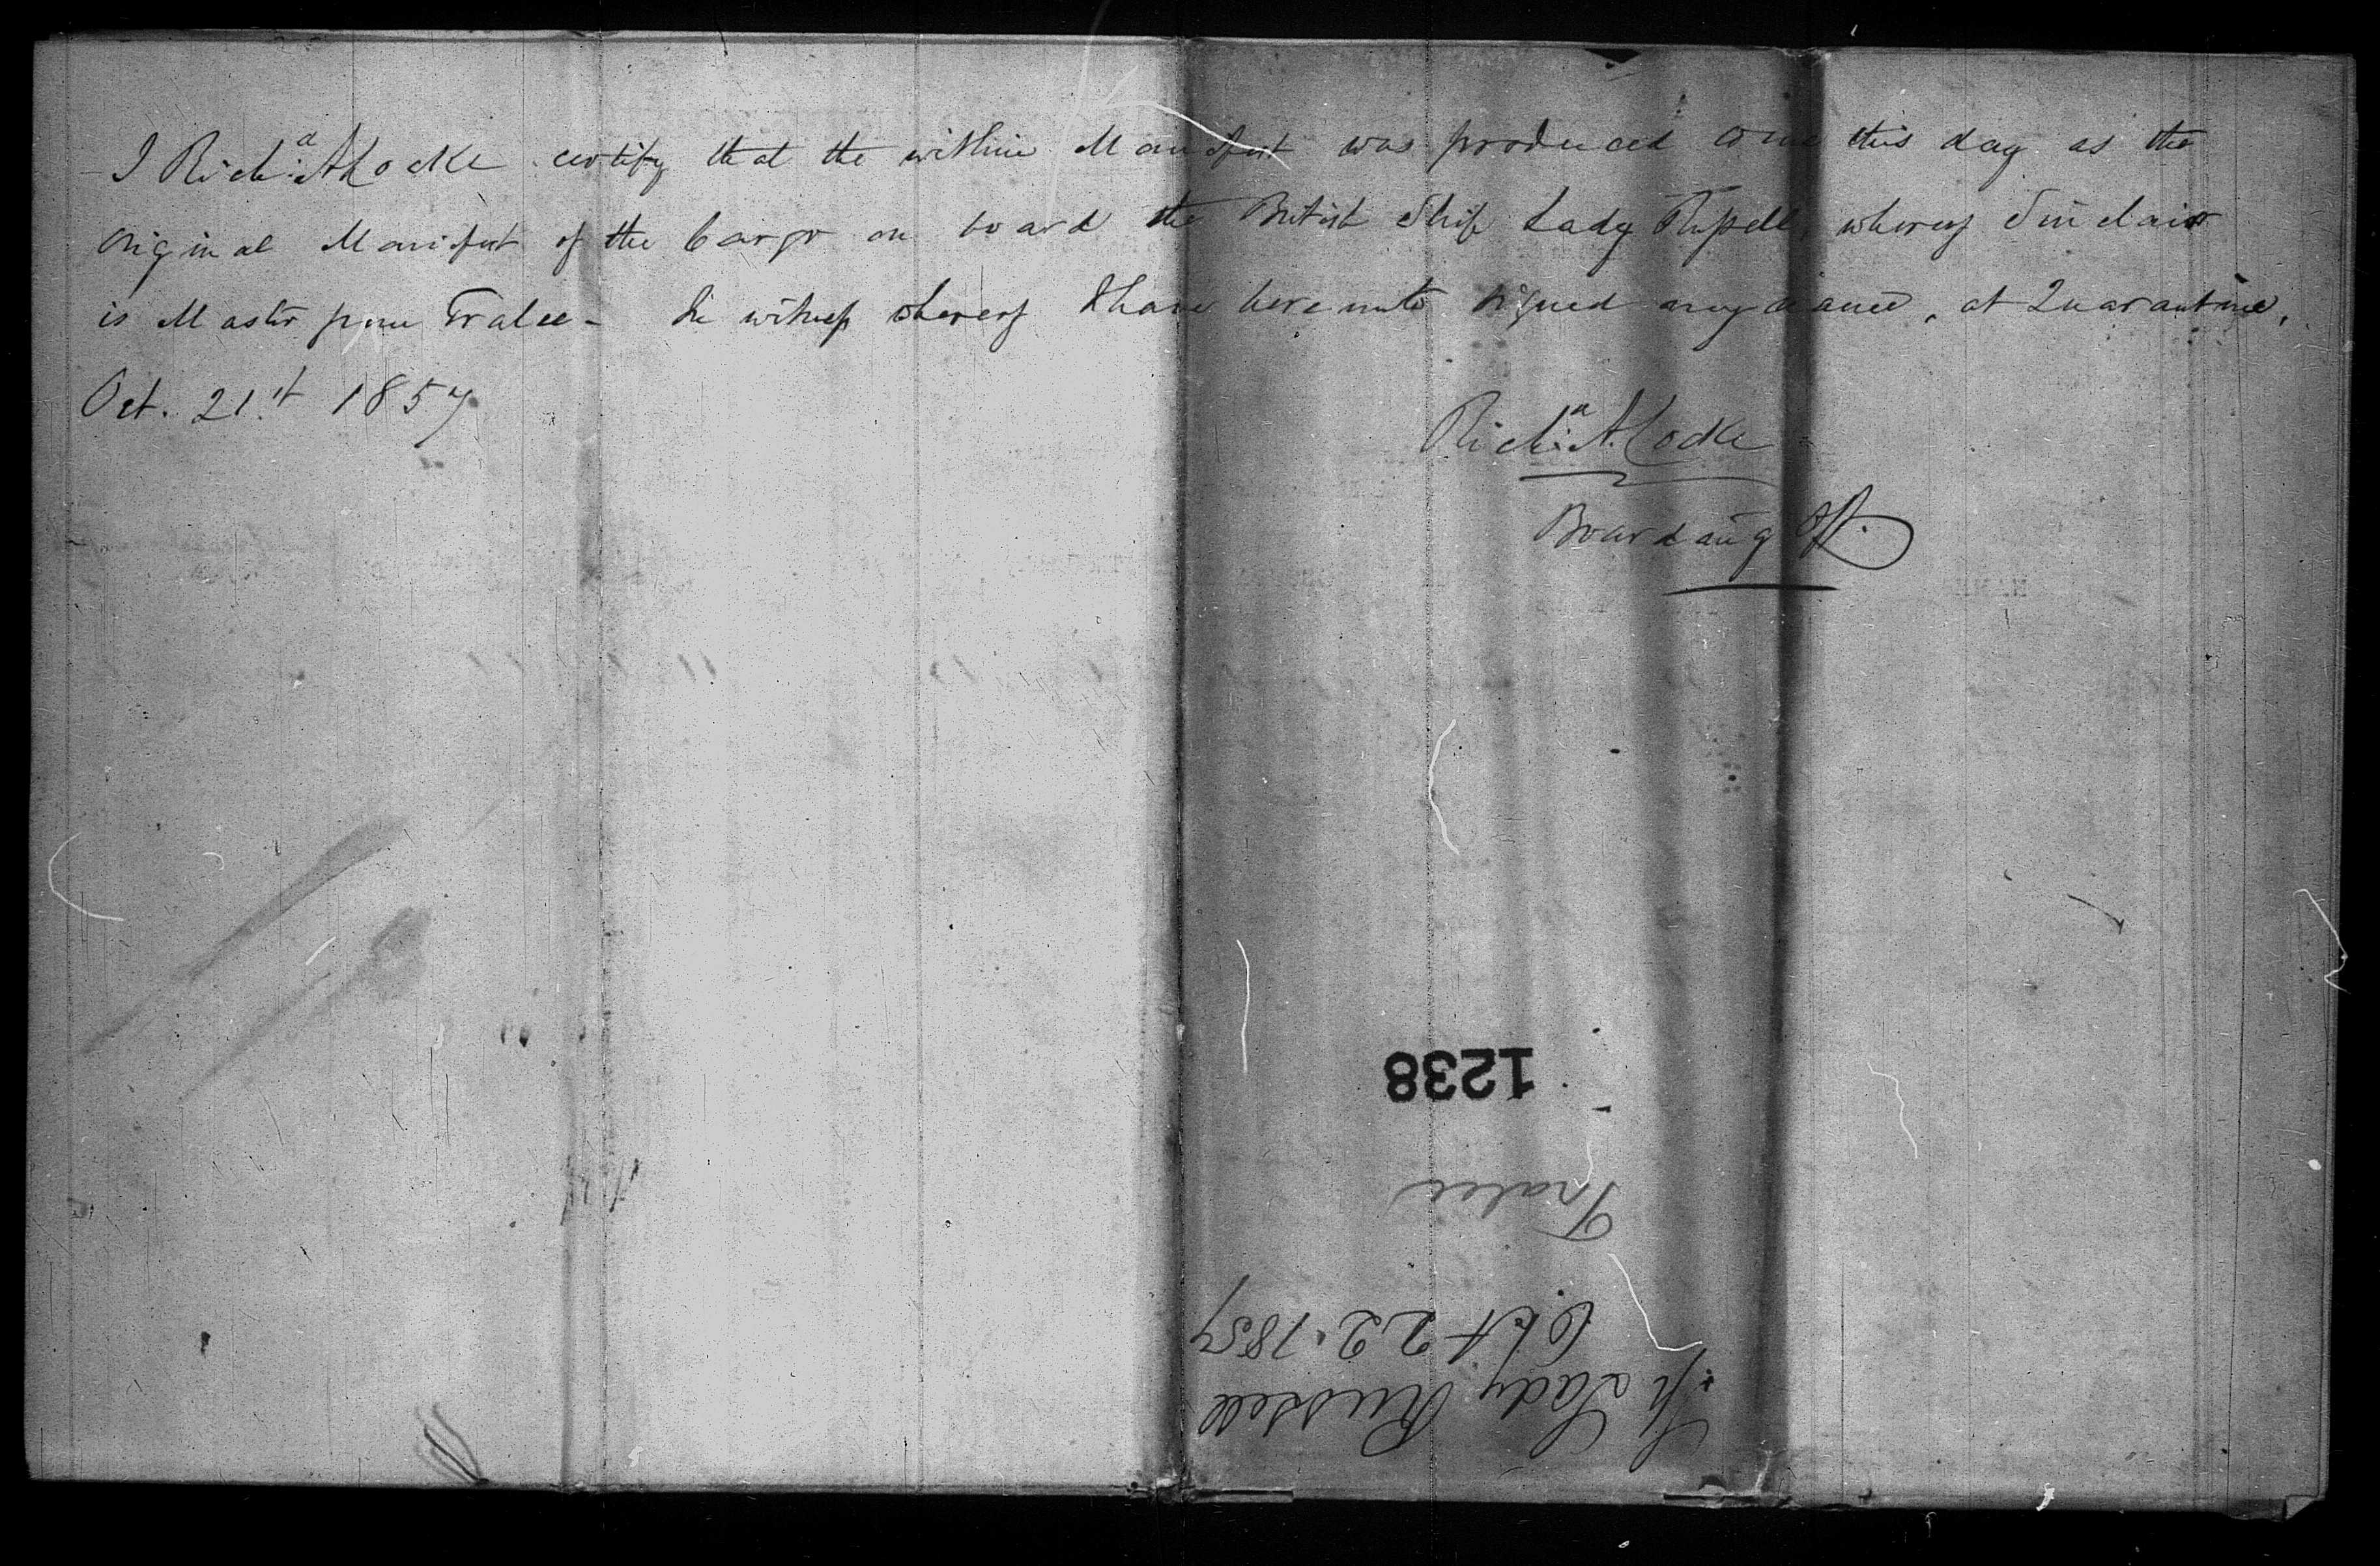 I Rich.d A Locke certify that the within Manifest was produced to me this day as the
original Manifest of the Cargo on board the British Ship Lady Russell, whereof Sinclair
is Master from Tralee - In witness whereof I have hereunto signed my name, at Quarantine,
Oct. 21st 1857
Rich.d A. Locke
Boarding Off.
Sp Lady Russell
Oct 22. 1857
Tralee
1238